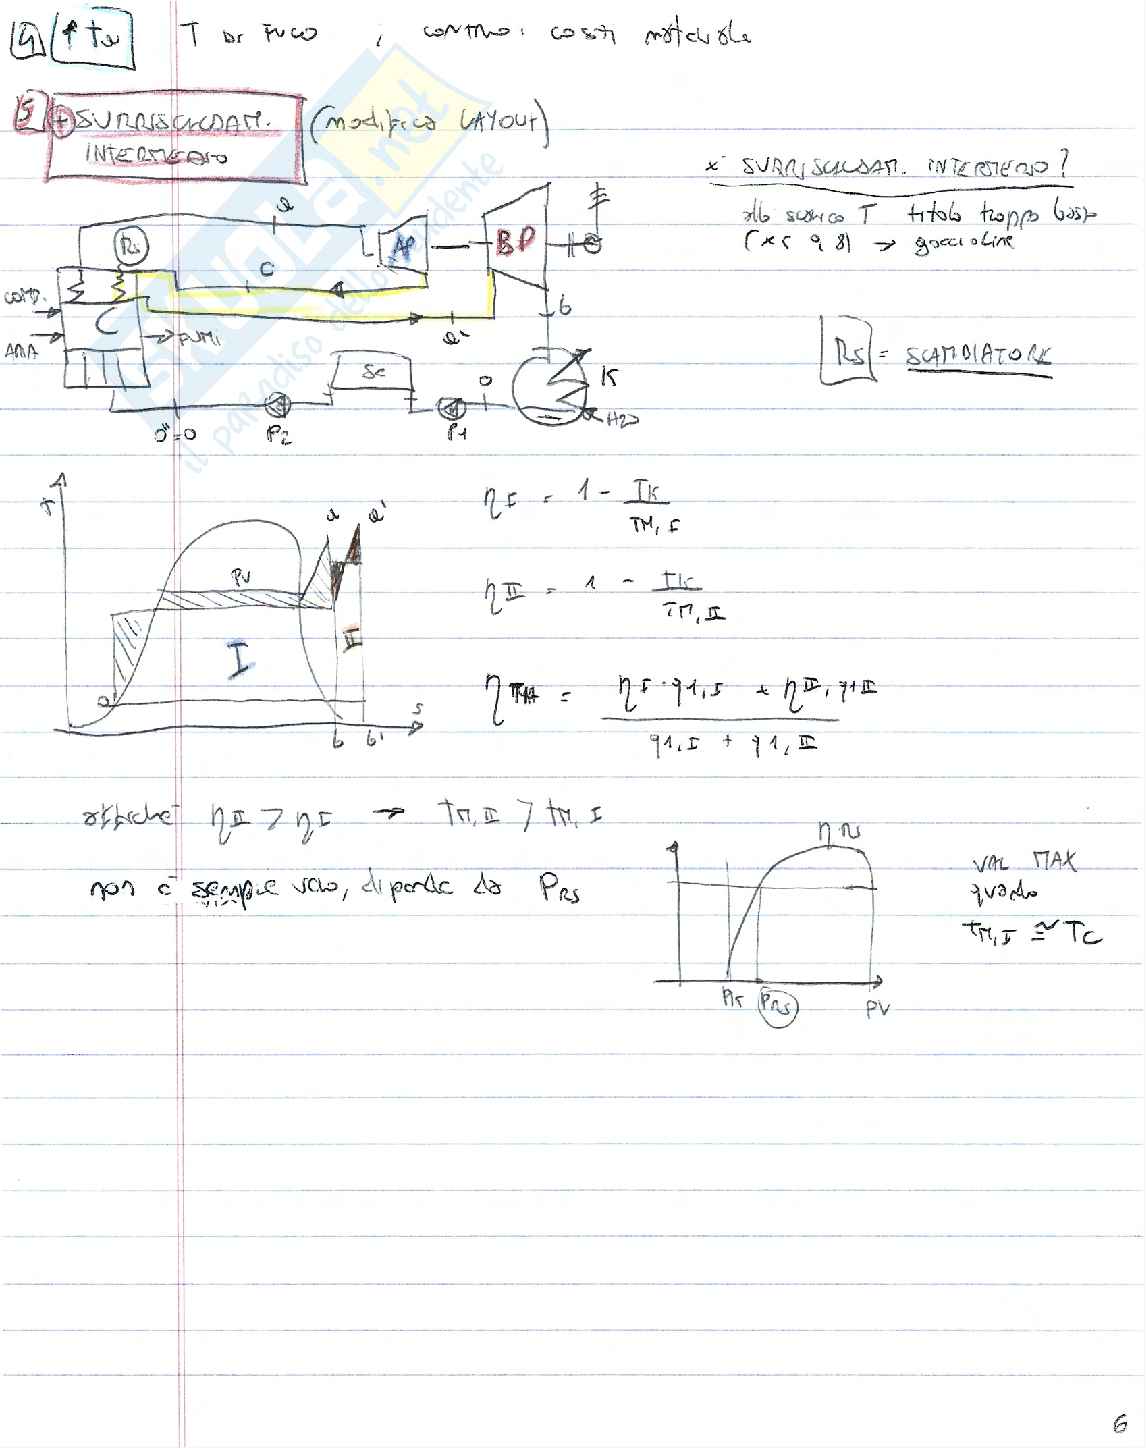 4 ↑ ta T DI FUCO ; CONTRO: COSTI MATERIALE
5 + SURRISCALDAM. INTERMEDIO (MODIFICO LAYOUT)
x SURRISCALDAM. INTERMEDIO?
allo scarico T titolo troppo basso
(x ≤ 0,8) → goccioline
RS = SCAMBIATORE
RS
a
AP
BP
C
COMB.
ARIA
FUMI
a'
b
SC
K
H2O
0"=0
P2
P1
0
T
a a'
PV
I
II
0
S
b b'
ηI = 1 - TK / TM, I
ηII = 1 - TK / TM, II
η = ηI · q1,I + ηII, q1II / q1,I + q1,II
affinché ηII > ηI → TM,II > TM,I
non è sempre vero, dipende da PRS
η RS
PRS
PV
VAL MAX
quando
TM,I ≅ TC
skuola.net
il paradiso dello studente
6